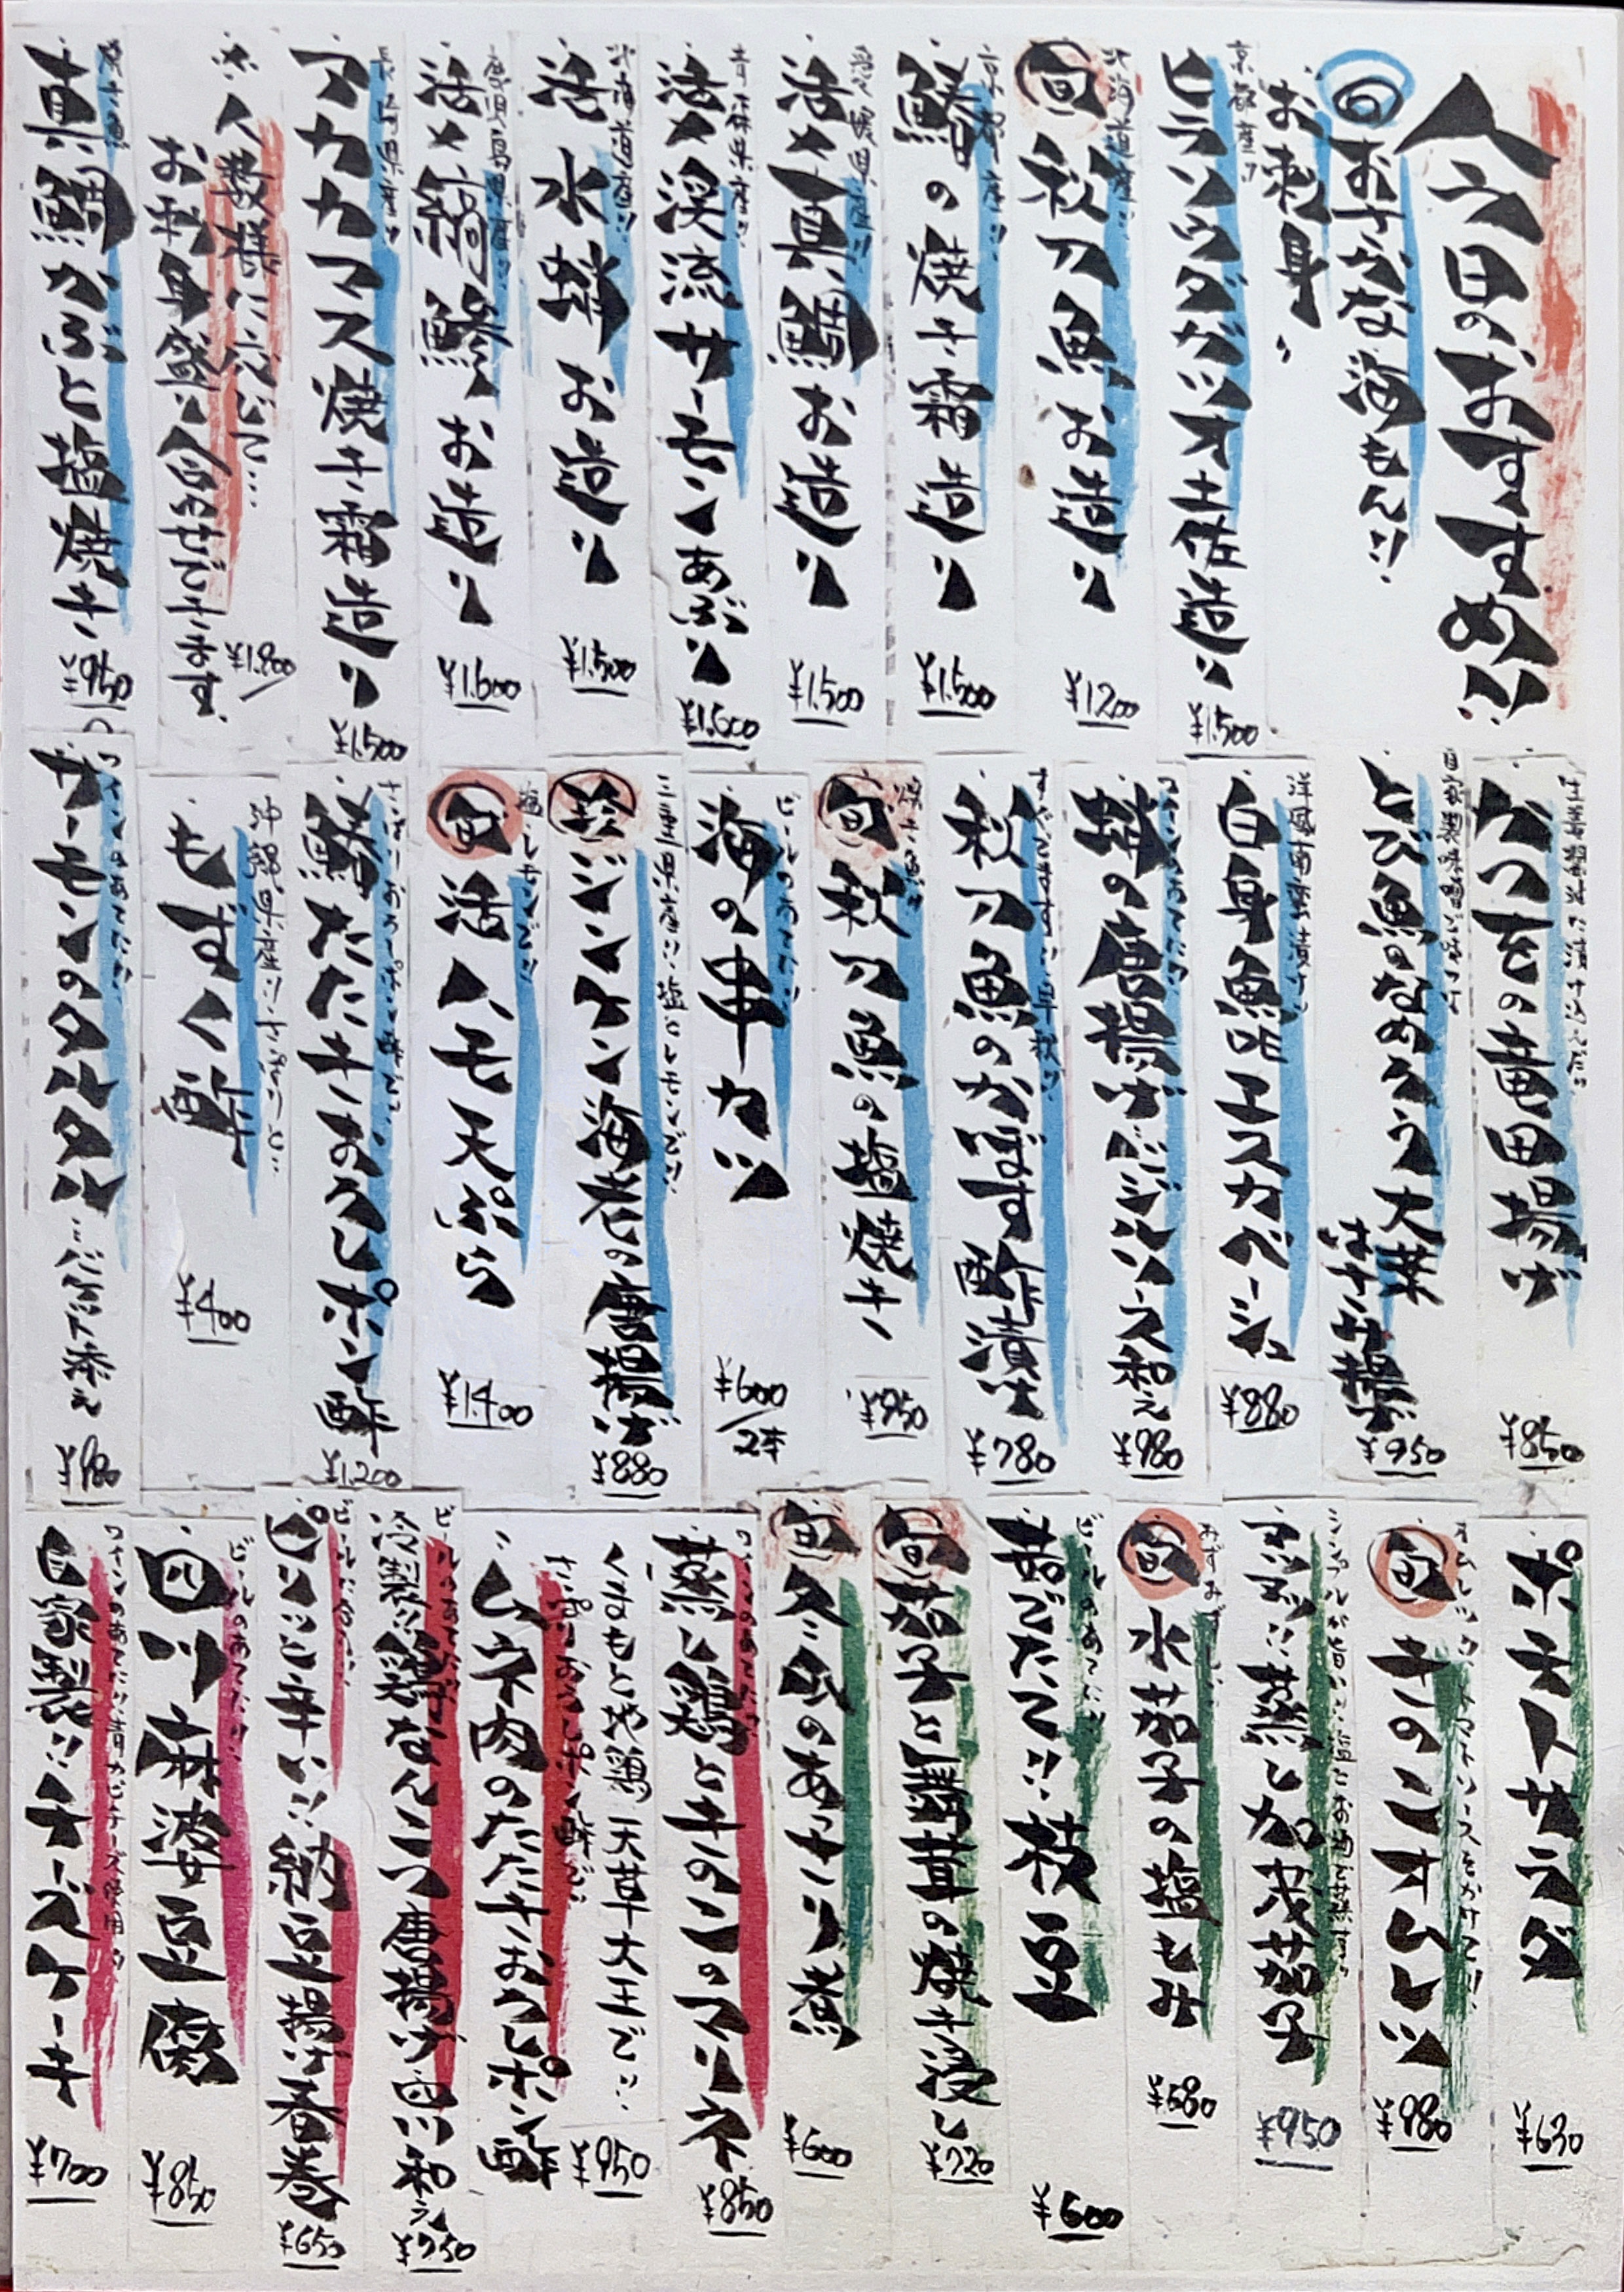 今日のおすすめ!!
おさかな 海もん!!
お刺身
京都産!!
ヒラソウダガツオ土佐造り
¥1.500
北海道産!!
旬 秋刀魚お造り
¥1.200
京都産!!
鰆の焼き霜造り
¥1.500
愛媛県産!!
活〆真鯛お造り
¥1.500
青森県産!!
活〆渓流サーモンあぶり
¥1.600
北海道産!!
活 水蛸お造り
¥1.500
鹿児島県産!!
活〆縞鯵お造り
¥1.600
長崎県産!!
アカカマス焼き霜造り
¥1.500
※人数様に応じて…
お刺身盛り合わせできます。
¥1.800
焼き魚
真鯛かぶと塩焼き
¥950
生姜醤油に漬け込んだ!!
かつをの竜田揚げ
¥850
自家製味噌で味つけ
とび魚のなめろう大葉
はさみ揚げ
¥950
洋風南蛮漬け!!
白身魚のエスカベージュ
¥880
ワインのあてに!!
蛸の唐揚げバジルソース和え
¥980
秋刀魚のかぼす酢漬け
¥780
焼き魚
旬 秋刀魚の塩焼き
¥950
ビールのあてに!!
海の串カツ
¥600/2本
三重県産!!塩とレモンで!!
珍 ジンケン海老の唐揚げ
¥880
塩とレモンで!!
旬 活ハモ天ぷら
¥1.400
さっぱりおろしポン酢で!!
鰆たたきおろしポン酢
¥1.200
沖縄県産!!さっぱりと!!
もずく酢
¥400
ワインのあてに!!
サーモンのタルタル…バケット添え
¥980
ポテトサラダ
¥630
オムレツにトマトソースをかけて!!
旬 きのこオムレツ
¥980
蒸し加茂茄子
¥950
旬 水茄子の塩もみ
¥680
ビールのあてに!!
茹でたて!!枝豆
¥600
旬 茄子と舞茸の焼き浸し
¥720
旬 冬瓜のあっさり煮
¥600
ワインのあてに!!
蒸し鶏ときのこのマリネ
¥850
くまもと地鶏 天草大王で!!
さっぱりおろしポン酢で!!
ムネ肉のたたきおろしポン酢
¥950
ビールのあてに!!
冷製!!鶏なんこつ唐揚げ四川和え
¥750
ビールに合う!!
ピリッと辛い!!納豆揚げ春巻
¥650
ビールのあてに!!
四川麻婆豆腐
¥850
ワインのあてに!!青カビチーズ使用!!
自家製!!チーズケーキ
¥700